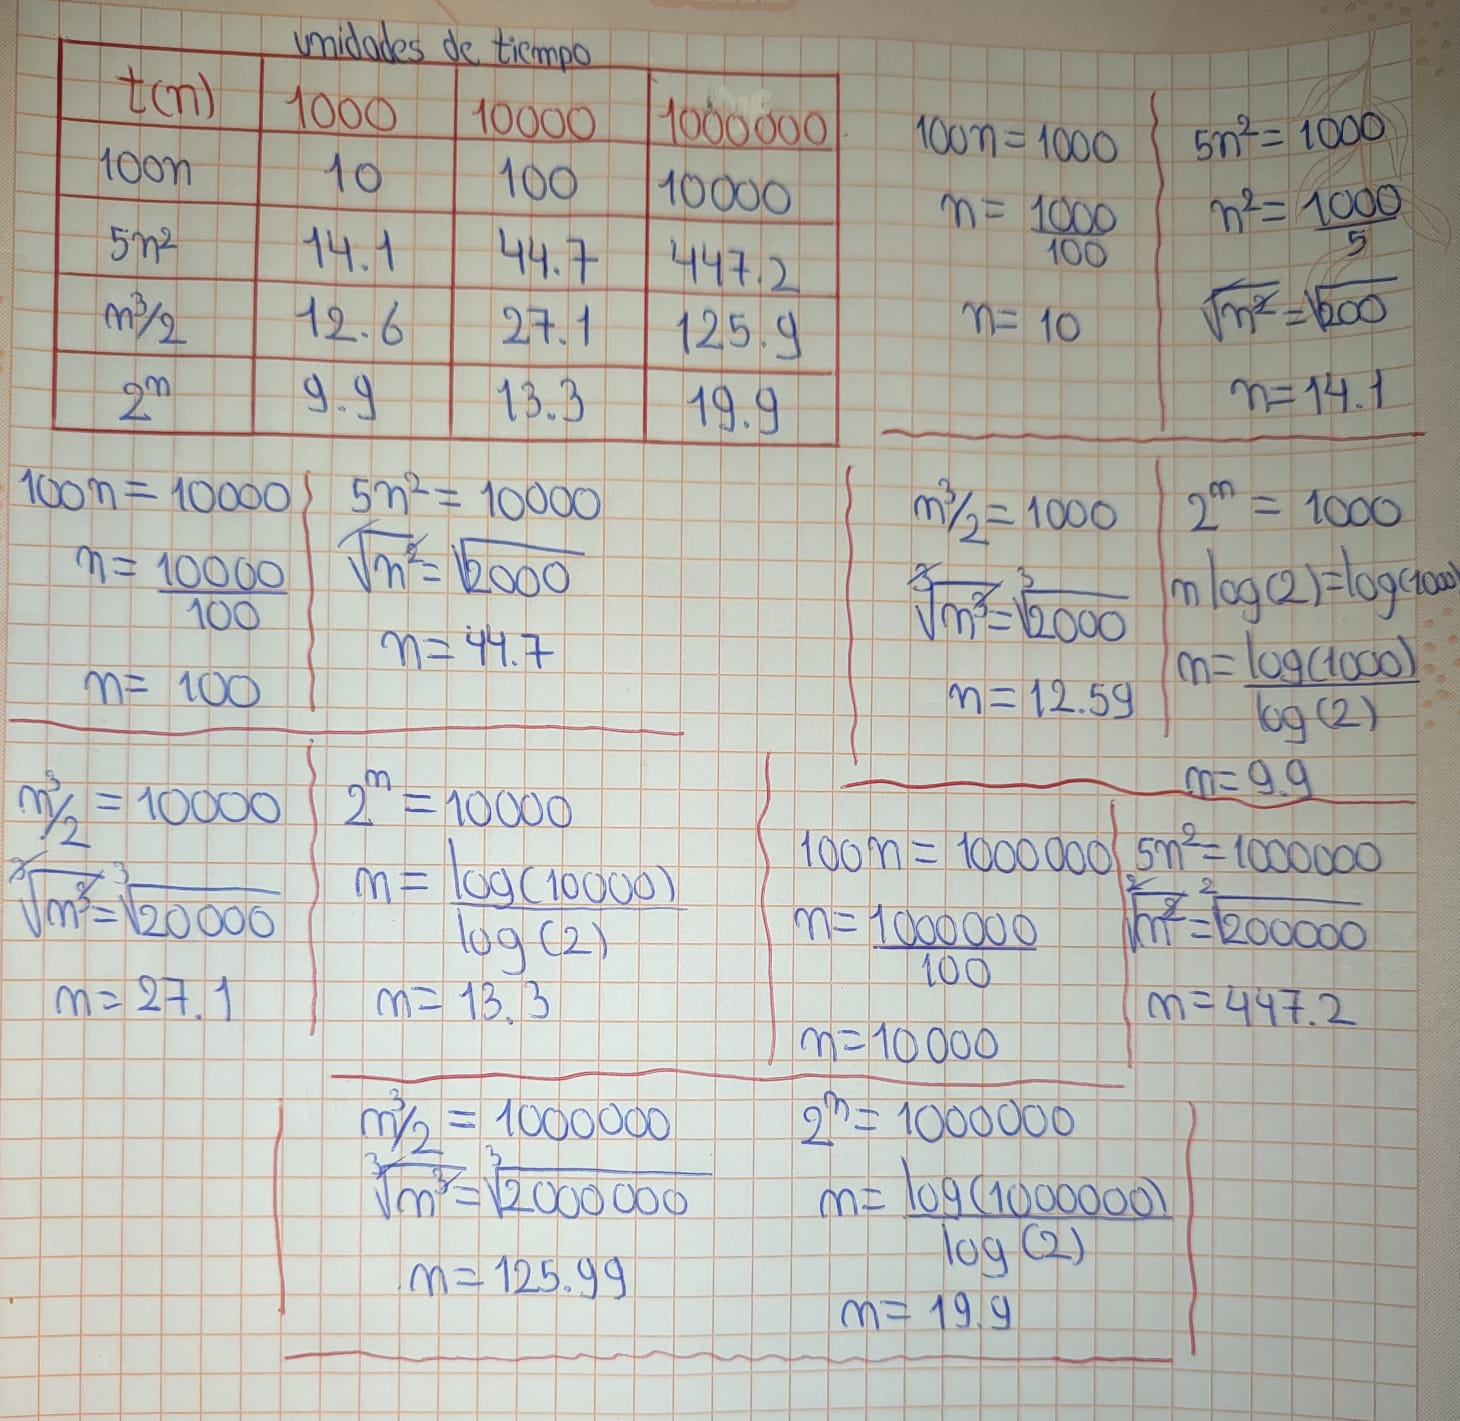 unidades de tiempo
t(n) 1000 10000 1000000
100n 10 100 10000
5n² 14.1 44.7 447.2
n³/2 12.6 27.1 125.9
2ⁿ 9.9 13.3 19.9
100n = 1000
n = 1000/100
n = 10
5n² = 1000
n² = 1000/5
√n² = √200
n = 14.1
100n = 10000
n = 10000/100
n = 100
5n² = 10000
√n² = √2000
n = 44.7
n³/2 = 1000
³√n³ = ³√2000
n = 12.59
2ⁿ = 1000
n log(2) = log(1000)
n = log(1000)/log(2)
n = 9.9
n³/2 = 10000
³√n³ = ³√20000
n = 27.1
2ⁿ = 10000
n = log(10000)/log(2)
n = 13.3
100n = 1000000
n = 1000000/100
n = 10000
5n² = 1000000
²√n² = ²√200000
n = 447.2
n³/2 = 1000000
³√n³ = ³√2000000
n = 125.99
2ⁿ = 1000000
n = log(1000000)/log(2)
n = 19.9